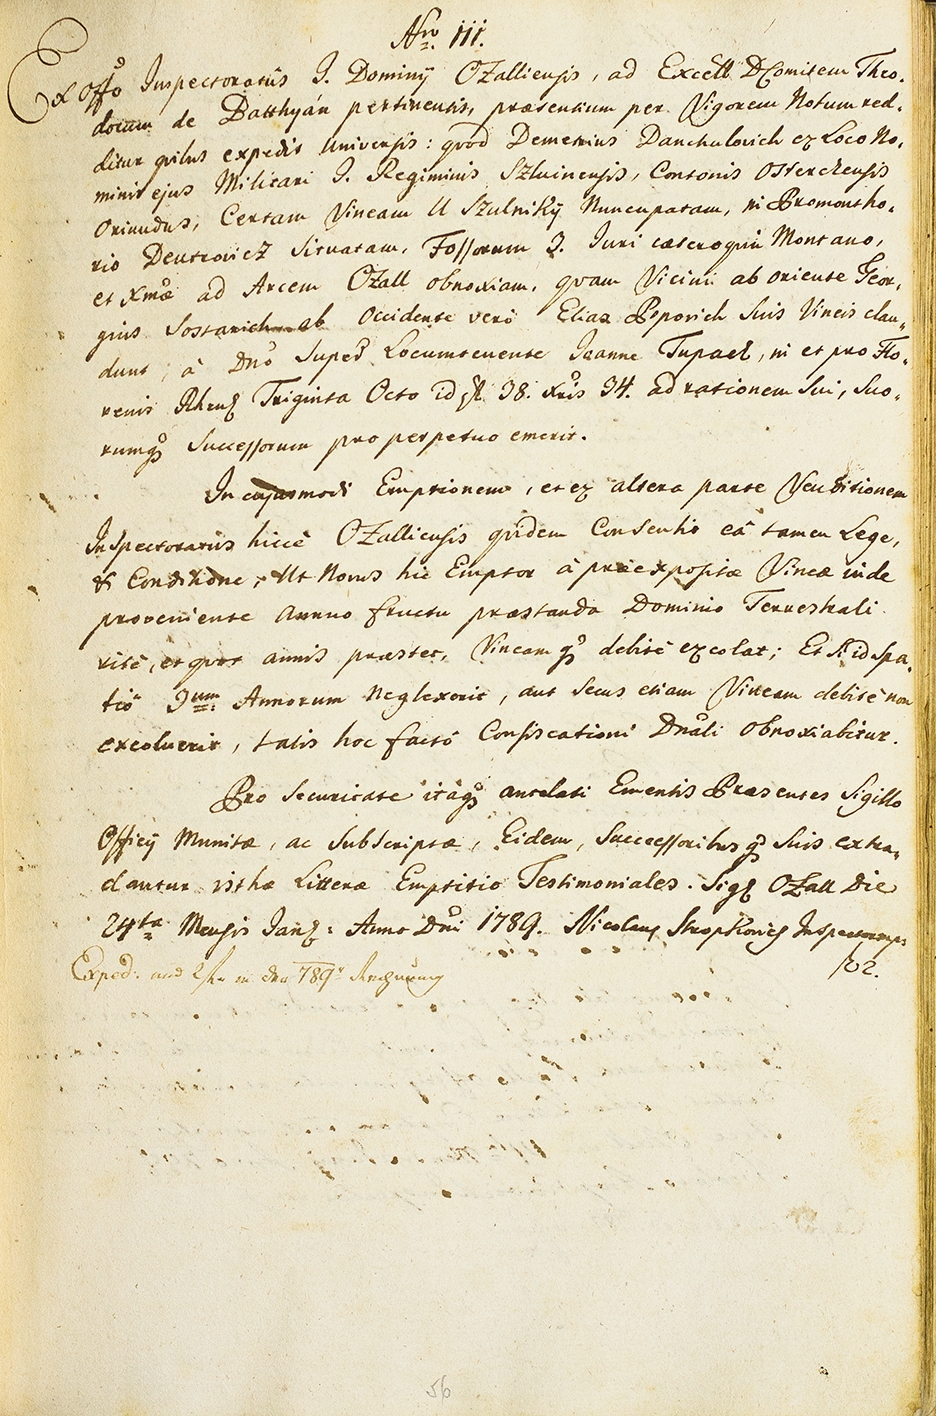 Nro III.
Ex Offo Inspectoratûs I. Dominÿ Ozalliensis, ad Excell. D Comitem Theo-
dorum de Batthÿán pertinentis, præsentium per Vigorem Notum red-
ditur quibus expedit Universis: quod Demetrius Danchulovich ex Loco No-
minis ejus Militari I. Regiminis Szluinensis, Contonis Ostercensis
Oriundus, Certam Vineam U Szulnikÿ Nuncupatam, in Promontho-
rio Deutrovicz Situatam, Fossorum 3. Iuri cæteroquin Montano,
et Xmæ ad Arcem Ozall obnoxiam, quam Vicini ab oriente Geor-
gius Sostarich ab Occidente vero Elias Popovich Suis Vineis clau-
dunt, à Dno Suped Locumtenente Ioanne Tupael, in et pro Flo-
renis Rhen Triginta Octo id est 38. xris 34. ad rationem Sui, Suo-
rumq Successorum pro perpetuo emerit.
In cujusmodi Emptionem, et ex altera parte Venditionem
Inspectoratus hicce Ozalliensis quidem Consentit eâ tamen Lege,
& Conditione, Ut Novus hic Emptor à præexpositæ Vineæ inde
proveniente Annuo fructu præstanda Dominio Terrestrali
rite, et quot annis præstet, Vineamq debite excolat; Et Si id Spa-
tio 3um Annorum Neglexerit, aut Secus etiam Vineam debite non
excoluerit, talis hoc facto Confiscationi Dnali Obnoxiabitur.
Pro Securitate itaq antelati Ementis Præsentes Sigillo
Officÿ Munitæ, ac Subscriptæ, Eidem, Successoribusq Suis extra-
dantur isthæ Litteræ Emptitio Testimoniales. Sig Ozall Die
24ta Mensis Jan: Anno Dni 1789. Nicolaus Inspector mp:
Exped: in den 789r Rechnung
102.
56